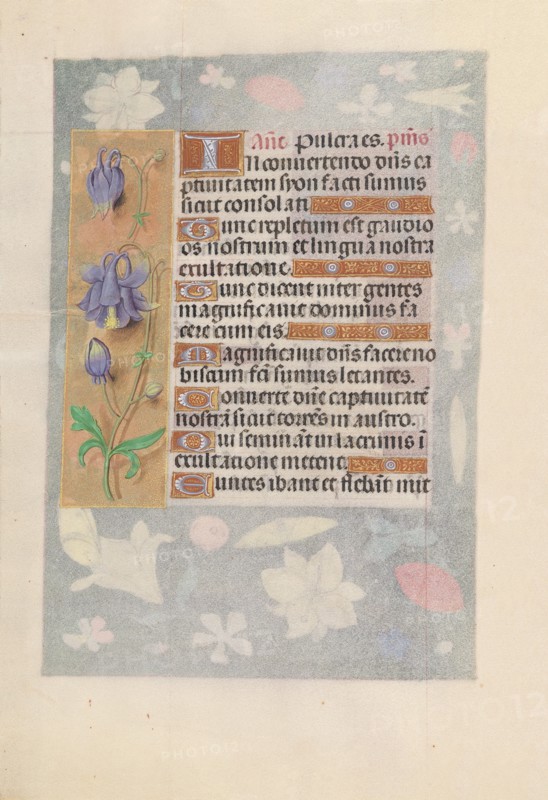 Añe Pulcra es. pm̃s
In convertendo dñs ca
ptivitatem syon facti sumus
sicut consolati
Tunc repletum est gaudio
os nostrum et lingua nostra
exultatione.
Tunc dicent inter gentes
magnificavit dominus fa
cere cum eis.
Magnificavit dñs facere no
biscum fc̃i sumus letantes.
Converte dñe captivitatẽ
nostrã sicut torrẽs in austro.
Qui seminãt in lacrimis ĩ
exultatione metent.
Euntes ibant et flebãt mit
PHOTO12